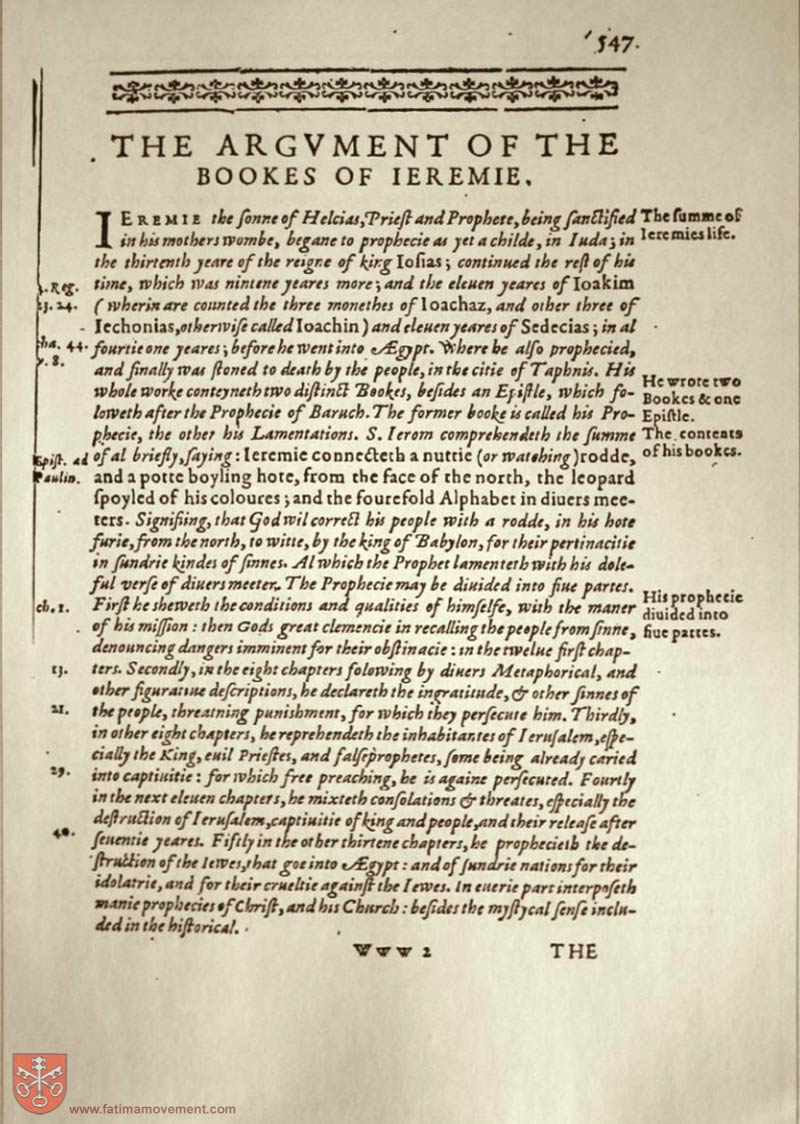 547.
THE ARGVMENT OF THE
BOOKES OF IEREMIE.
IEREMIE the sonne of Helcias, Priest and Prophete, being sanctified
in his mothers wombe, begane to prophecie as yet a childe, in Iuda; in
the thirtenth yeare of the reigne of king Iosias; continued the rest of his
time, which was nintene yeares more; and the eleuen yeares of Ioakim
(wherin are counted the three monethes of Ioachaz, and other three of
Iechonias, otherwise called Ioachin) and eleuen yeares of Sedecias; in al
fourtie one yeares; before he went into Ægypt. Where he also prophecied,
and finally was stoned to death by the people, in the citie of Taphnis. His
whole worke conteyneth two distinct Bookes, besides an Epistle, which fo-
loweth after the Prophecie of Baruch. The former booke is called his Pro-
phecie, the other his Lamentations. S. Ierom comprehendeth the summe
of al briefly, saying: Ieremie connecteth a nuttie (or watching) rodde,
and a potte boyling hote, from the face of the north, the leopard
spoyled of his coloures; and the fourefold Alphabet in diuers mee-
ters. Signifiing, that God wil correct his people with a rodde, in his hote
furie, from the north, to witte, by the king of Babylon, for their pertinacitie
in sundrie kindes of sinnes. Al which the Prophet lamenteth with his dole-
ful verse of diuers meeter. The Prophecie may be diuided into fiue partes.
First he sheweth the conditions and qualities of himselfe, with the maner
of his mission: then Gods great clemencie in recalling the people from sinne,
denouncing dangers imminent for their obstinacie: in the twelue first chap-
ters. Secondly, in the eight chapters folowing by diuers Metaphorical, and
other figuratiue descriptions, he declareth the ingratitude, & other sinnes of
the people, threatning punishment, for which they persecute him. Thirdly,
in other eight chapters, he reprehendeth the inhabitantes of Ierusalem, espe-
cially the King, euil Priestes, and falseprophetes, some being already caried
into captiuitie: for which free preaching, he is againe persecuted. Fourtly
in the next eleuen chapters, he mixteth consolations & threates, especially the
destruction of Ierusalem, captiuitie of king and people, and their release after
seuentie yeares. Fiftly in the other thirtene chapters, he prophecieth the de-
struction of the Iewes, that goe into Ægypt: and of sundrie nations for their
idolatrie, and for their crueltie against the Iewes. In euerie part interposeth
manie prophecies of Christ, and his Church: besides the mystycal sense inclu-
ded in the historical.
The summe of
Ieremies life.
He wrote two
Bookes & one
Epistle.
The contents
of his bookes.
His prophecie
diuided into
fiue partes.
Reg.
24.
44.
8.
Epist. ad
Paulin.
ch. 1.
13.
21.
29.
40.
Www 2
THE
www.fatimamovement.com